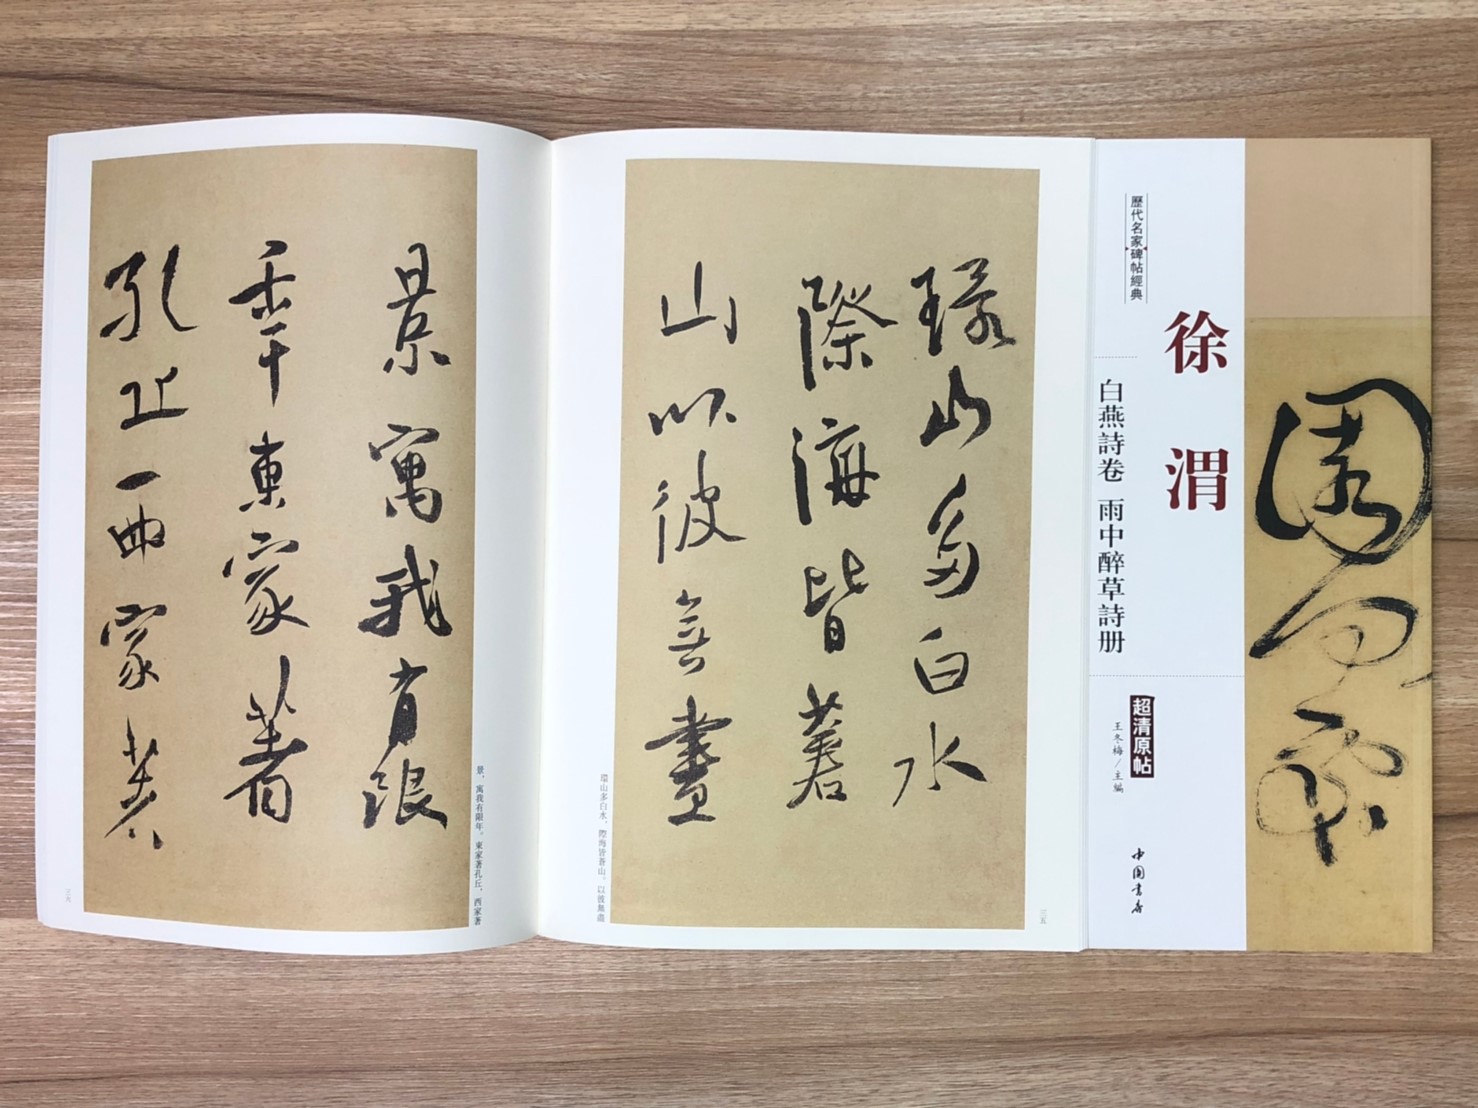 歷代名家碑帖經典
徐渭
白燕詩卷 雨中醉草詩册
超清原帖
王冬梅／主編
中國書店
環山多白水
際海皆蒼
山以彼無盡
環山多白水，際海皆蒼山。以彼無盡
三五
景寓我有限
年東家著
孔丘西家著
景，寓我有限年。東家著孔丘，西家著
三六